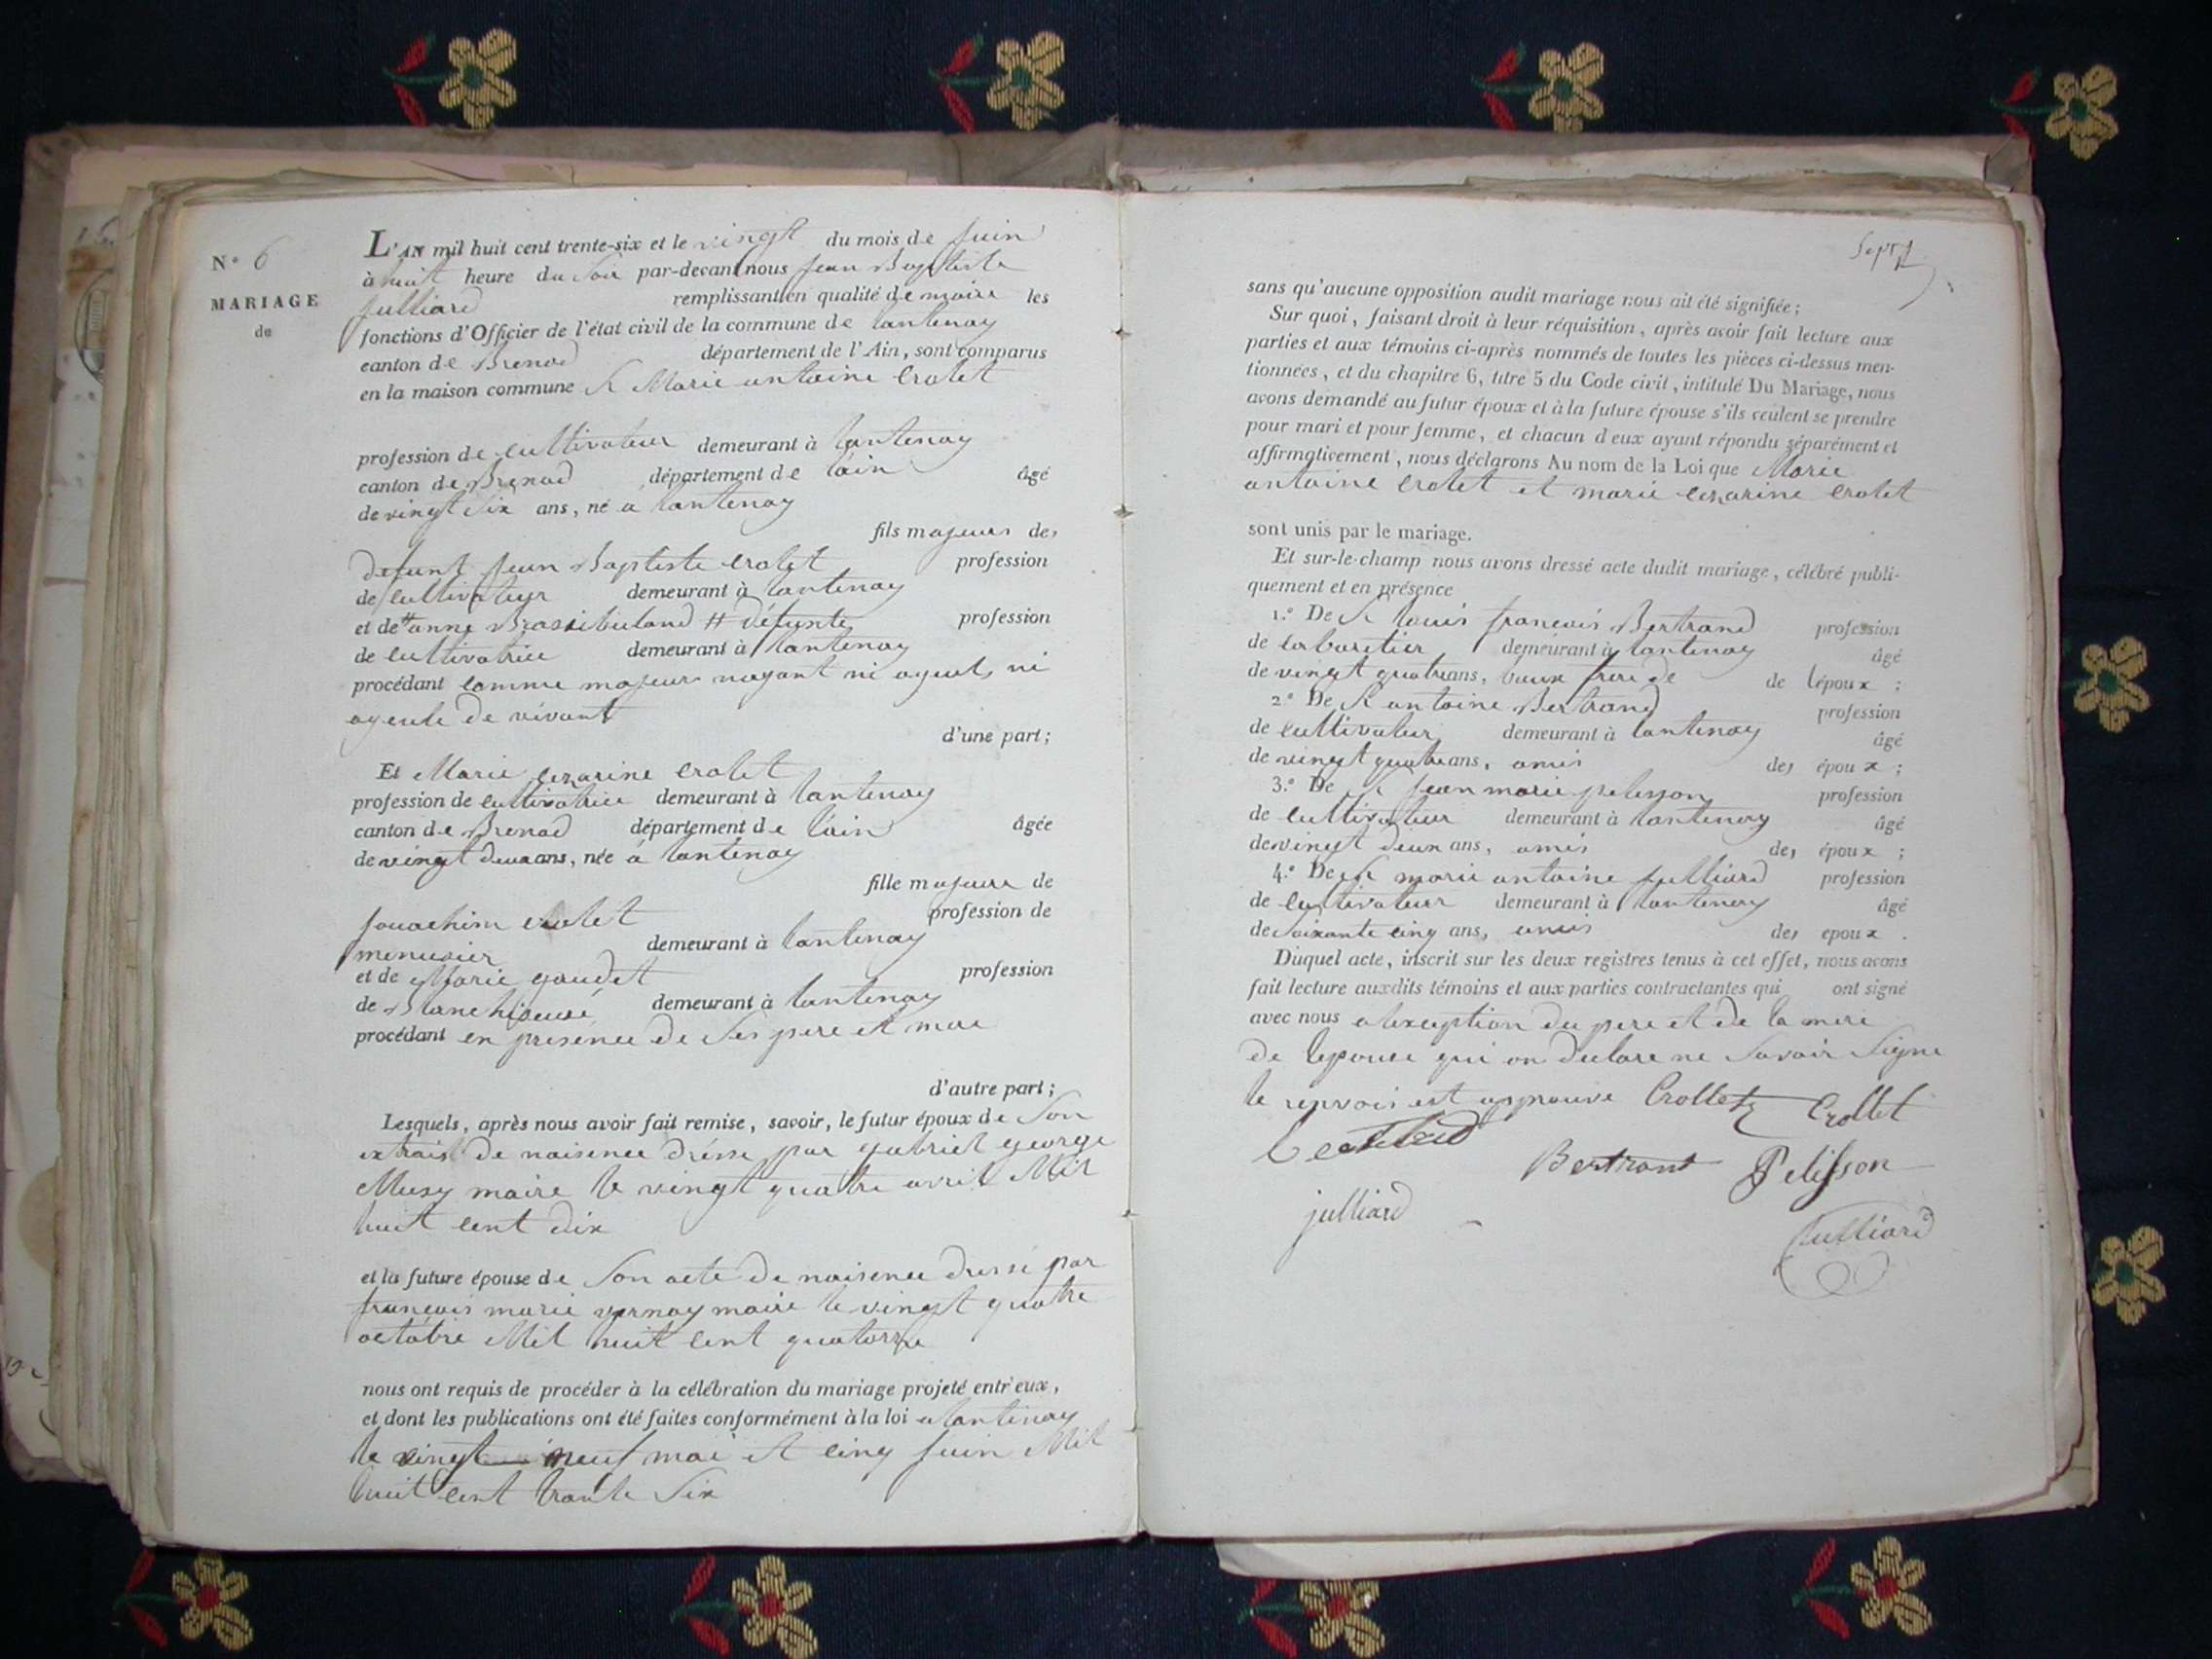 N° 6
MARIAGE
de
L'AN mil huit cent trente-six et le vingt du mois de juin
à huit heure du soir par-devant nous jean Baptiste
julliard remplissant en qualité de maire les
fonctions d'Officier de l'état civil de la commune de lantenay
canton de Brenod département de l'Ain, sont comparus
en la maison commune Sr Marie antoine crolet
profession de cultivateur demeurant à lantenay
canton de Brenod département de lain âgé
de vingt six ans, né a lantenay
fils majeur de
defunt jean Baptiste crolet profession
de cultivateur demeurant à lantenay
et de # anne Brassibuland # défunte profession
de cultivatrice demeurant à lantenay
procédant comme majeur nayant ni ayeul, ni
ayeule de vivant
d'une part;
Et Marie cezarine crolet
profession de cultivatrice demeurant à lantenay
canton de Brenod département de lain âgée
de vingt deux ans, née a lantenay
fille majeure de
jouachim crolet profession de
menusier demeurant à lantenay
et de Marie goudet profession
de Blanchiseuse demeurant à lantenay
procédant en presence de ses pere et mere
d'autre part;
Lesquels, après nous avoir fait remise, savoir, le futur époux de son
extrait de naisence drésse par gabriel george
Musy maire le vingt quatre avril Mil
huit cent dix
et la future épouse de son acte de naisence dressé par
françois marie vernay maire le vingt quatre
octobre Mil huit cent quatorze
nous ont requis de procéder à la célébration du mariage projeté entr'eux,
et dont les publications ont été faites conformément à la loi a lantenay
le vingt neuf mai et cinq juin Mil
huit cent trante six
Sept
sans qu'aucune opposition audit mariage nous ait été signifiée;
Sur quoi, faisant droit à leur réquisition, après avoir fait lecture aux
parties et aux témoins ci-après nommés de toutes les pièces ci-dessus men-
tionnées, et du chapitre 6, titre 5 du Code civil, intitulé Du Mariage, nous
avons demandé au futur époux et à la future épouse s'ils veulent se prendre
pour mari et pour femme, et chacun d'eux ayant répondu séparément et
affirmativement, nous déclarons Au nom de la Loi que Marie
antoine crolet et marie cezarine crolet
sont unis par le mariage.
Et sur-le-champ nous avons dressé acte dudit mariage, célébré publi-
quement et en présence
1.° De Sr louis françois Bertrand profession
de cabaretier demeurant à lantenay âgé
de vingt quatre ans, beaux frere de de lépoux ;
2.° De Sr antoine Bertrand profession
de cultivateur demeurant à lantenay âgé
de vingt quatre ans, amis des époux ;
3.° De Sr jean marie pelisson profession
de cultivateur demeurant à lantenay âgé
de vingt deux ans, amis des époux ;
4.° De Sr marie antoine julliard profession
de cultivateur demeurant à lantenay âgé
de soixante cinq ans, amis des époux .
Duquel acte, inscrit sur les deux registres tenus à cet effet, nous avons
fait lecture auxdits témoins et aux parties contractantes qui ont signé
avec nous a lexception du pere et de la mere
de lepouse qui on declare ne savoir signe
le renvois est approuve Crollet Crollet
Bertrant Pelisson
julliard
Julliard